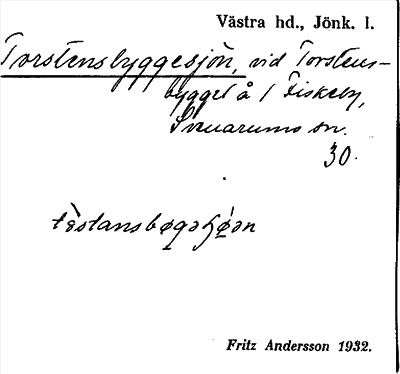 Västra hd., Jönk. l.
Torstensbyggesjön, vid Torstens-
bygget å / Fiskeby,
Svenarums sn.
30.
tèstansbøgəʃǿən
Fritz Andersson 1932.